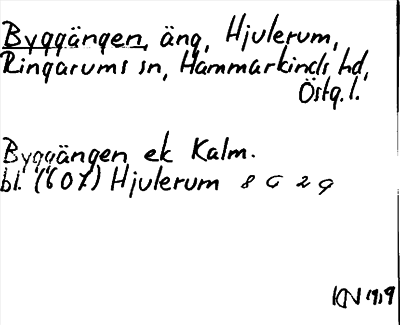 Byggängen, äng, Hjulerum,
Ringarums sn, Hammarkinds hd,
Östg. l.
Byggängen ek Kalm.
bl. (607) Hjulerum 8 G 2 g
KN 1919